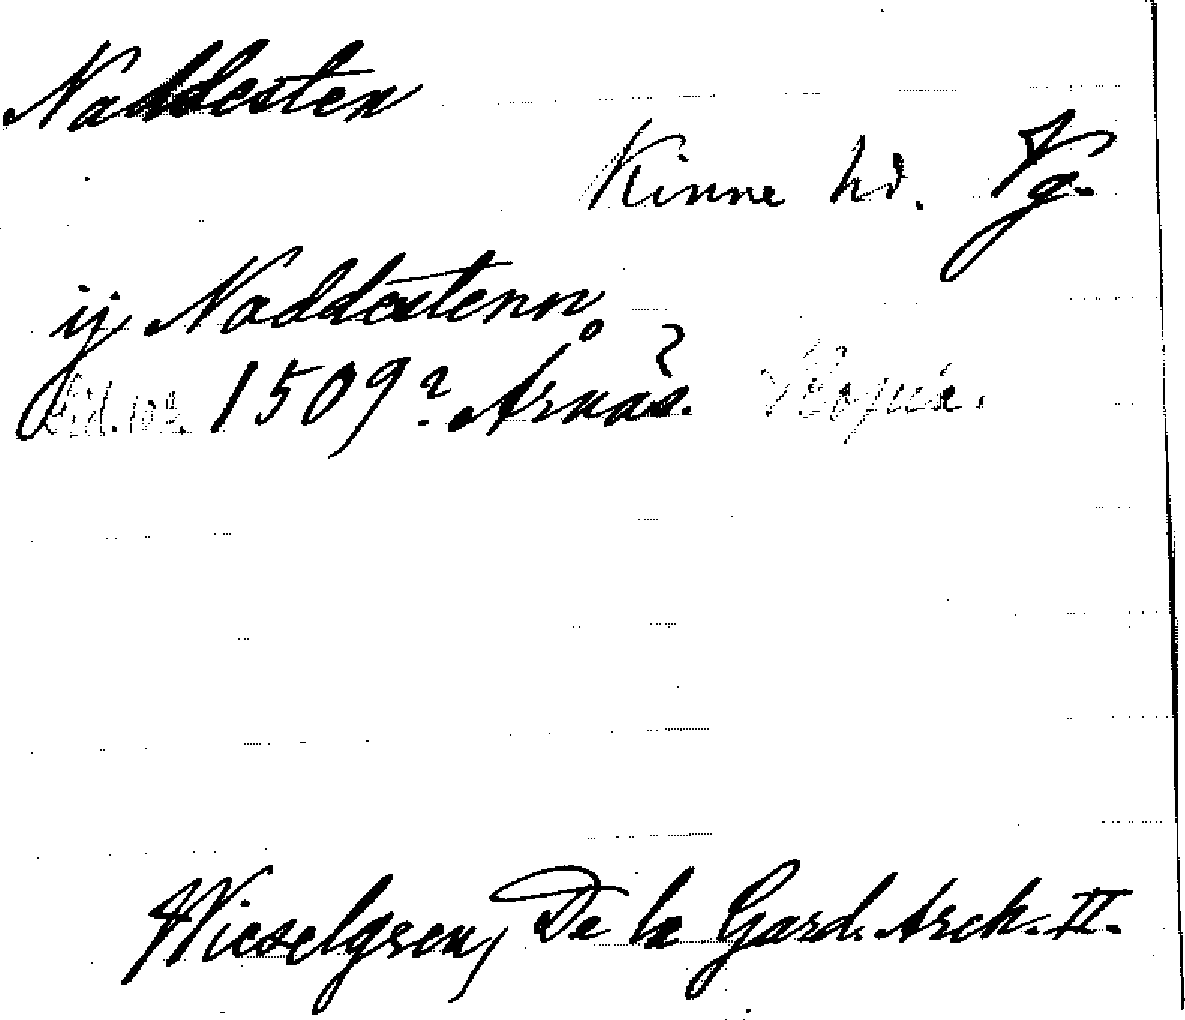 Naddesten
Kinne hd. Vg.
ij Naddestenn
Sid. 102. 1509? Årnäs. Kopia.
Wieselgren, De la Gard. Arch. II.